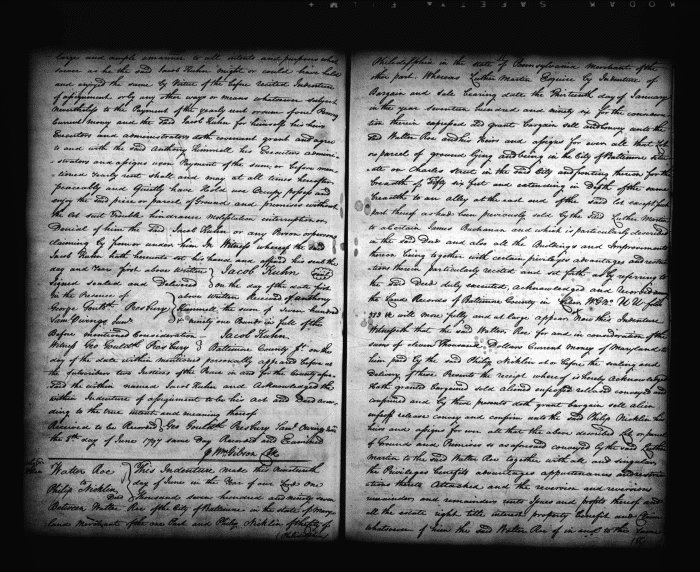 large and ample manner to all intents and purposes what
soever as he the said Jacob Kuhn might or could have held
and enjoyed the same by Virtue of the before recited Indenture
of assignment only any other ways or means whatsoever subject
nevertheless to the Payment of the yearly rent or sum of one Penny
Current money and the said Jacob Kuhn for himself his heirs
Executors and administrators doth covenant grant and agree
to and with the said Anthony his Executors adminis-
trators and assigns upon Payment of the sum or before men-
tioned Yearly rent shall and may at all times hereafter
peaceably and Quietly have Hold use Occupy possess and
enjoy the said piece or parcel of Ground and premises without
the let suit Trouble hindrance molestation interruption or
Denial of him the said Jacob Kuhn or any Person or persons
claiming by from or under him In Witness whereof the said
Jacob Kuhn hath hereunto set his hand and affixed his seal the
day and Year first above written Jacob Kuhn
Signed sealed and Delivered on the day of the date first
In the Presence of above written Received of Anthony
George Gouldh. Presbury the sum of seven hundred
Saml Owings Junr ninety one Pounds in full of the
Before mentioned Consideration Jacob Kuhn
Witness Geo Gouldh. Presbury Baltimore County Sc. on the
day of the date within mentioned personally appeared before us
the subscribers two Justices of the Peace in and for the County afore
said the within named Jacob Kuhn and Acknowledged the
within Indenture of assignment to be his act and Deed accor-
ding to the true intent and meaning thereof
Received to be Recorded Geo Gouldh. Presbury Saml Owings Junr
the 8th day of June 1797 same Day Recorded and Examined
Wm Gibson Clk
Walter Roe This Indenture made this Nineteenth
to day of June in the Year of our Lord One
Philip Nicklin Thousand seven hundred and ninety seven
Deed
Between Walter Roe of the City of Baltimore in the state of Mary
land Merchant of the one Part and Philip Nicklin of the City of
Philadelphia in the state of Pennsylvania Merchant of the
other part. Whereas Luther Martin Esquire by Indenture of
Bargain and Sale bearing date the Thirteenth day of January
in the year seventeen hundred and ninety six for the considera-
tion therein expressed did grant bargain sell and convey unto the
said Walter Roe and his Heirs and assigns for ever all that
or parcel of ground lying and being in the City of Baltimore situ-
ate on Charles Street in the said City and fronting thereon for the
breadth of fifty six feet and extending in Depth of the same
breadth to an alley at the east end of the said lot except such
part thereof as had been previously sold by the said Luther Martin
to a certain James Buchanan and which is particularly described
in the said Deed and also all the Buildings and Improvements
thereon being together with certain privileges advantages and reserva-
tions therein particularly recited and set forth as by referring to
the said Deed duly executed, acknowledged and recorded in
the Land Records of Baltimore County in Liber W G No U U folio
will more fully and at large appear Now this Indenture
Witnesseth that the said Walter Roe for and in consideration of the
sum of eleven Thousand Dollars Current Money of Maryland to
him paid by the said Philip Nicklin at or before the sealing and
delivery of these Presents the receipt whereof is hereby Acknowledged
Hath granted bargained sold aliened enfeoffed released conveyed and
confirmed and by these presents doth grant bargain sell alien
enfeoff release convey and confirm unto the said Philip Nicklin his
heirs and assigns for ever all that the above described Lot or parcel
of Ground and Premises so as aforesaid conveyed by the said Luther
Martin to the said Walter Roe together with all and singular
the Privileges benefits advantages appurtenances and reserva-
tions thereto Attached and the reversion and reversions
remainder and remainders rents Issues and profits thereof and
all the estate right title interest property benefit and Claim
whatsoever of him the said Walter Roe of in and to the same